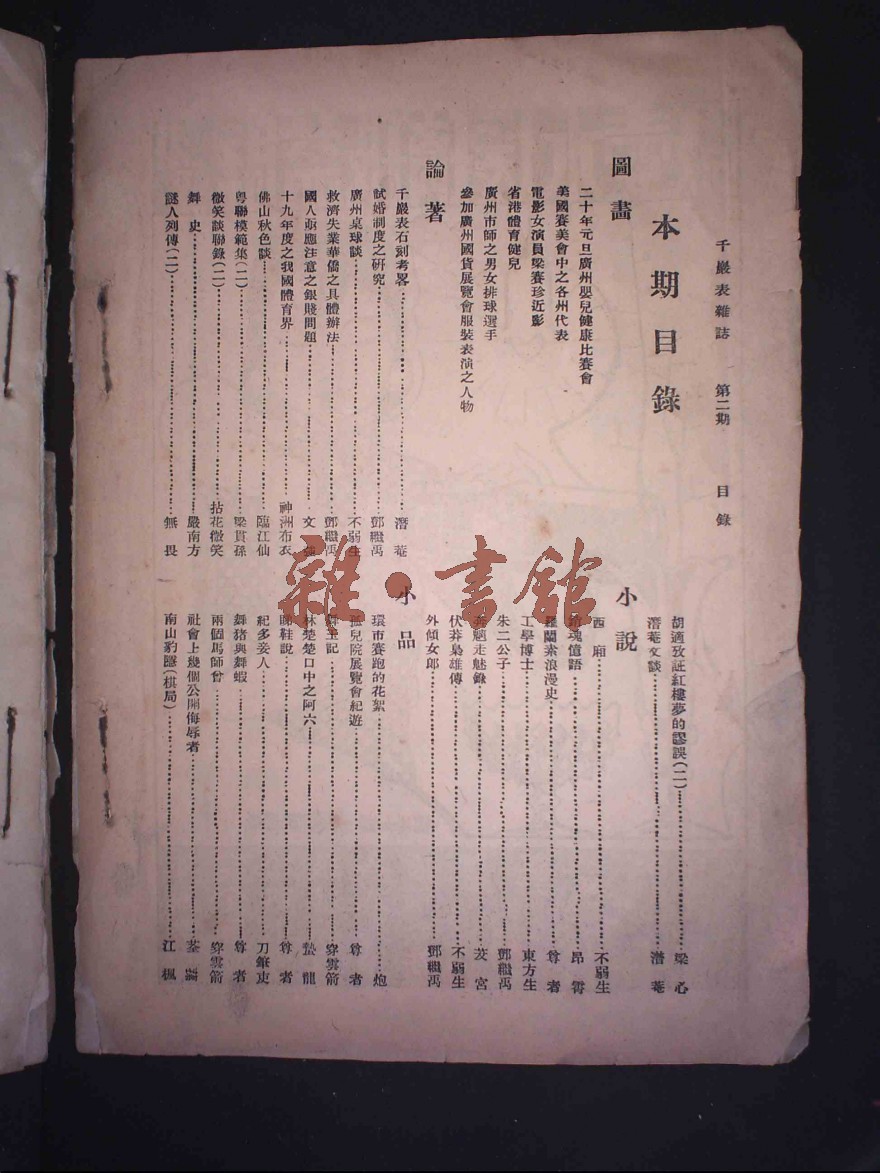 千巖表雜誌 第二期 目錄
本期目錄
圖畫
二十年元旦廣州嬰兒健康比賽會
美國賽美會中之各州代表
電影女演員梁賽珍近影
省港體育健兒
廣州市師之男女排球選手
參加廣州國貨展覽會服裝表演之人物
論著
千巖表石刻考畧 潛菴
試婚制度之研究 鄧繼禹
廣州桌球談 不弱生
救濟失業華僑之具體辦法 鄧繼禹
國人亟應注意之銀賤問題 文
十九年度之我國體育界 神洲布衣
佛山秋色談 臨江仙
粵聯模範集(二) 梁貫孫
微笑談聯錄(二) 拈花微笑
舞史 嚴南方
謎人列傳(二) 無畏
胡適攷証紅樓夢的謬誤(二) 梁心
潛菴文談 潛菴
小說
西廂 不弱生
魂憶語 昂霄
羅蘭素浪漫史 尊者
工學博士 東方生
朱二公子 鄧繼禹
魑走魅錄 茨宮
伏莽梟雄傳 不弱生
外傾女郎 鄧繼禹
小品
環市賽跑的花絮 炮
孤兒院展覽會紀遊 尊者
王記 穿雲箭
林楚楚口中之阿六 蟄龍
睡鞋說 尊者
紀多妾人 刀筆吏
舞猪與舞蝦 尊者
兩個馬師曾 穿雲箭
社會上幾個公開侮辱者 荃
南山豹隱(棋局) 江楓
雜·書館